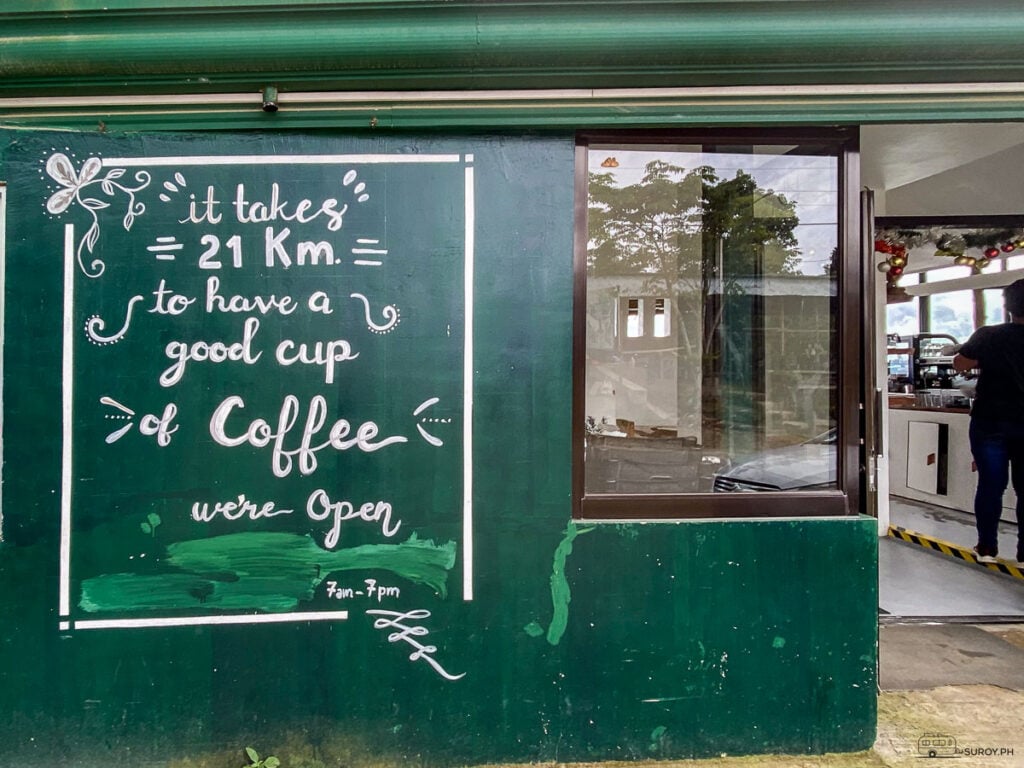 it takes
21 Km.
to have a
good cup
of Coffee
we're Open
7am - 7pm
SUROY.PH